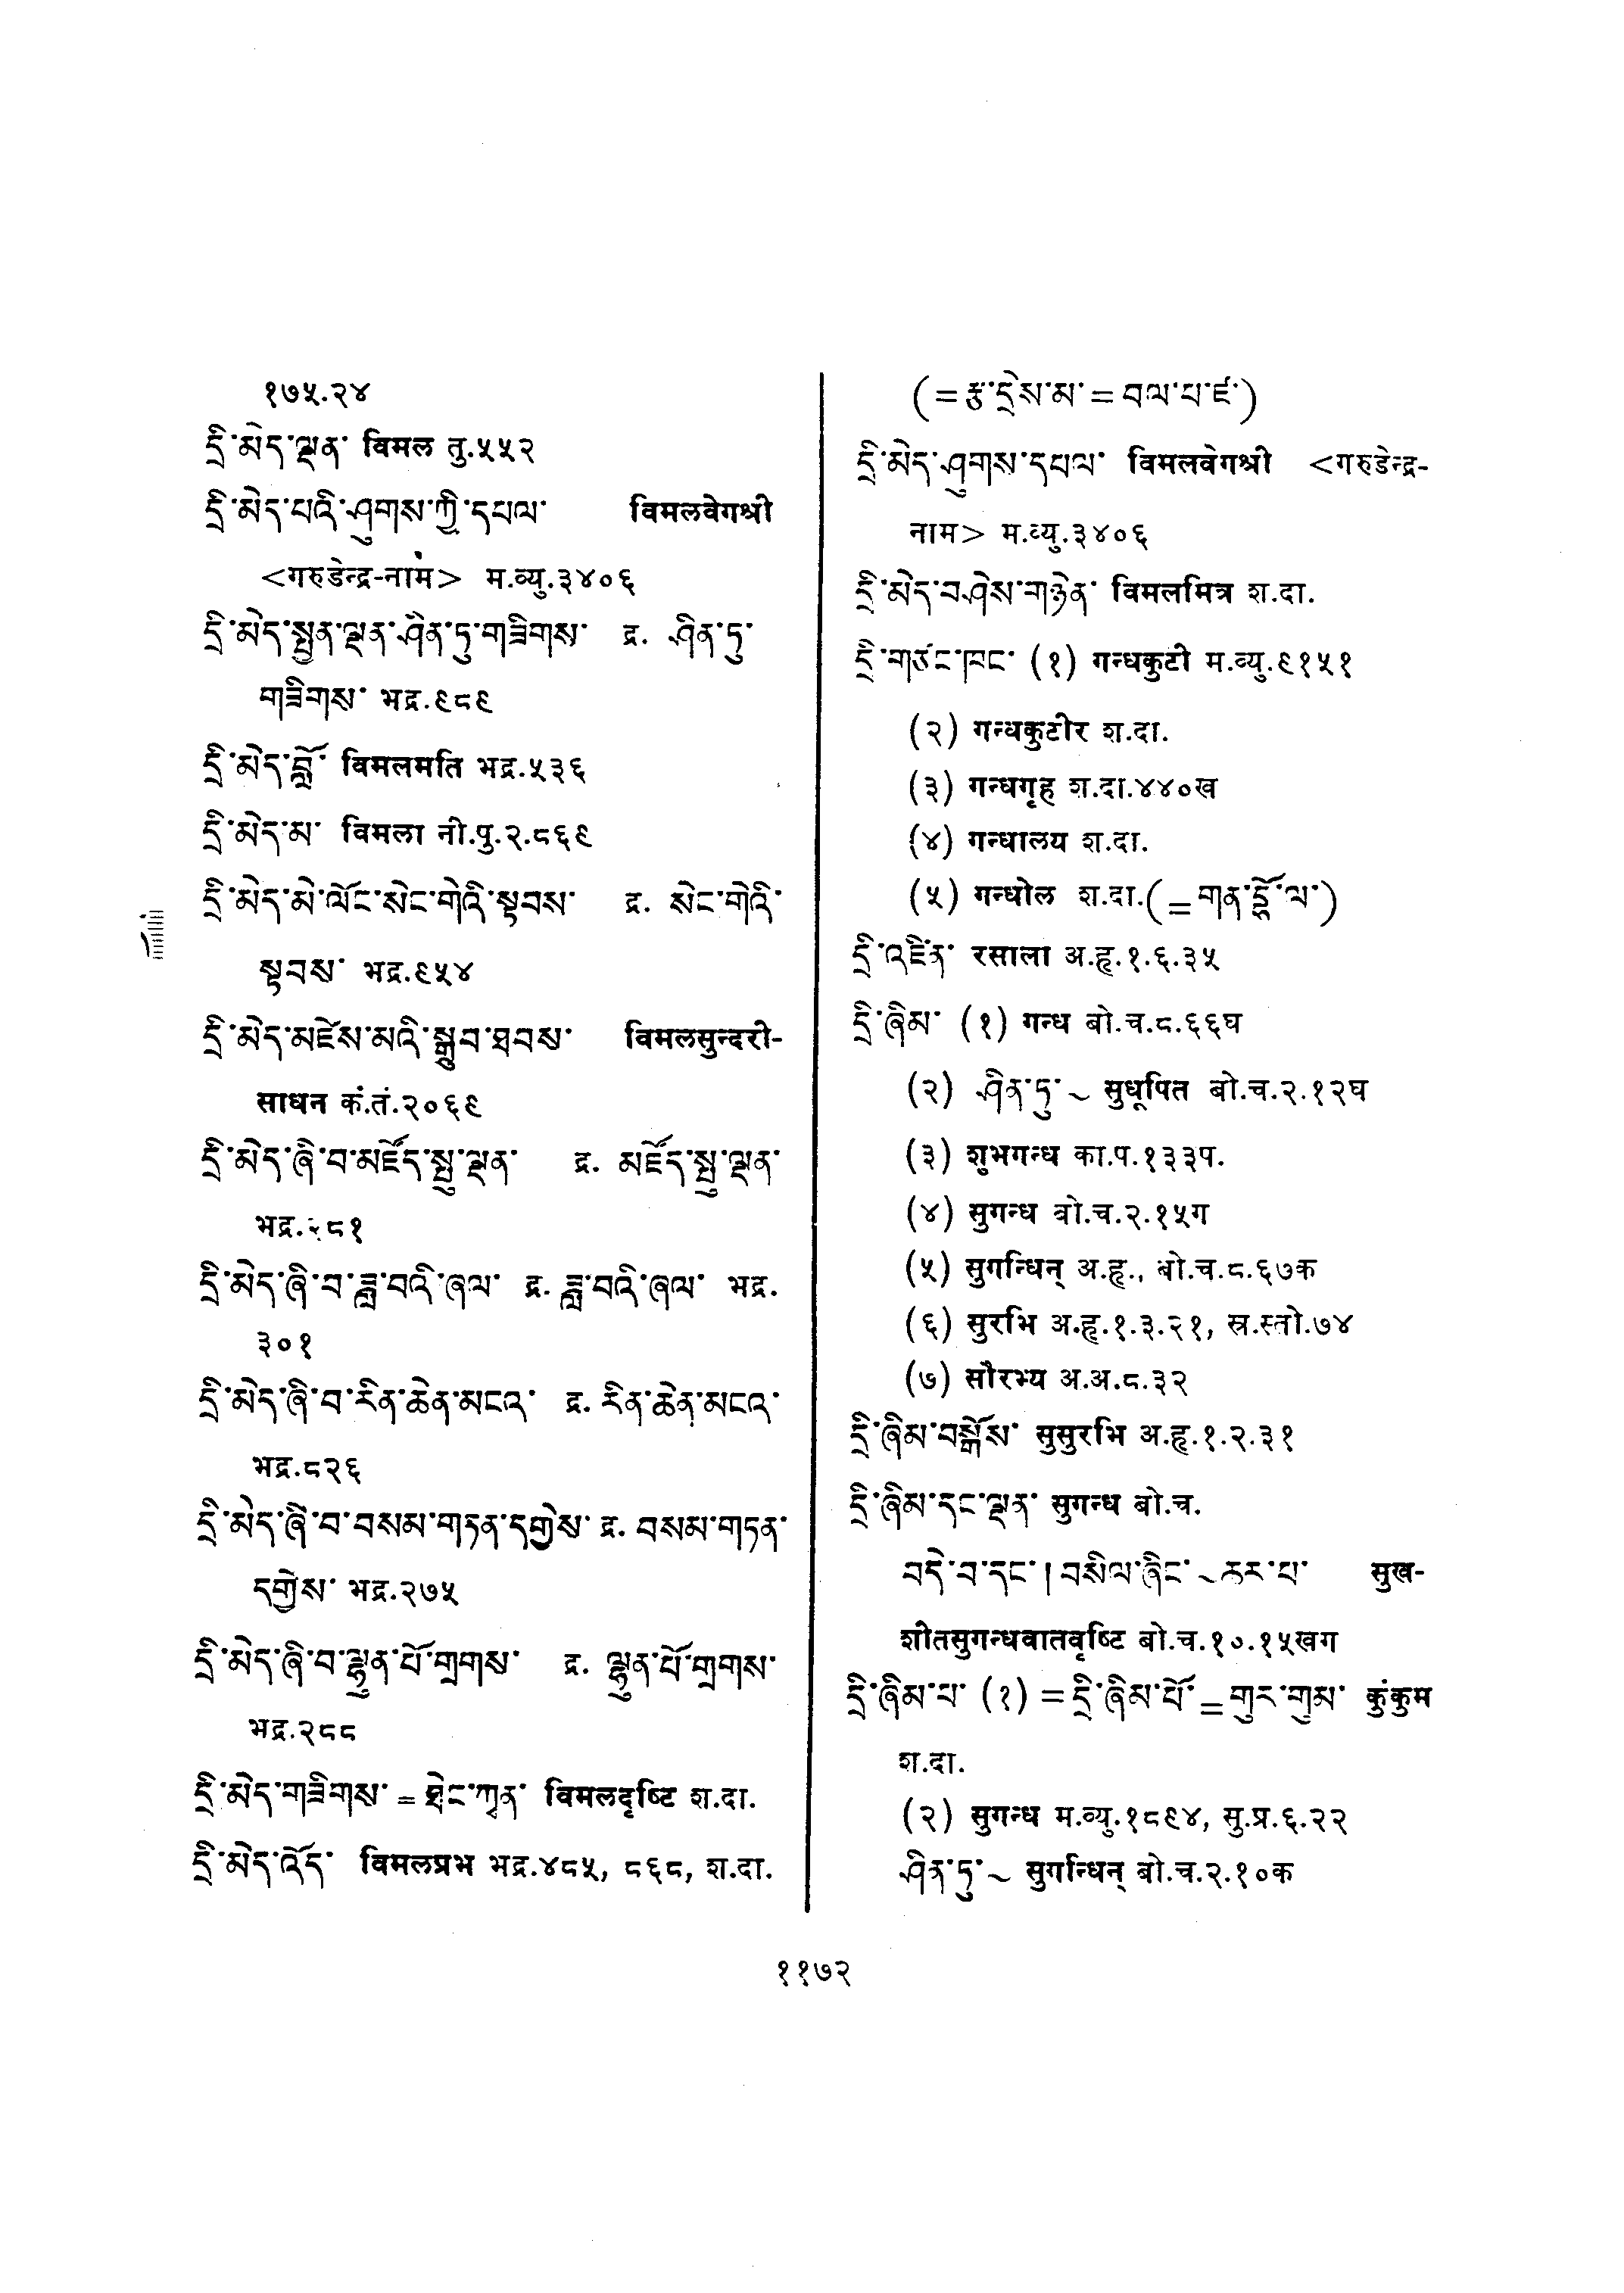 १७५.२४
དྲི་མེད་ལྡན་ विमल तु.५५२
དྲི་མེད་པའི་ཤུགས་ཀྱི་དཔལ་ विमलवेगश्री
<गरुडेन्द्र-नाम> म.व्यु.३४०६
དྲི་མེད་སྤྱན་ལྡན་ཤིན་ཏུ་གཟིགས་ द्र. ཤིན་ཏུ་
གཟིགས་ भद्र.९८९
དྲི་མེད་བློ་ विमलमति भद्र.५३६
དྲི་མེད་མ་ विमला नी.पु.२.८६९
དྲི་མེད་མེ་ལོང་སེང་གེའི་སྟབས་ द्र. སེང་གེའི་
སྟབས་ भद्र.९५४
དྲི་མེད་མཛེས་མའི་སྒྲུབ་ཐབས་ विमलसुन्दरी-
साधन कं.तं.२०६९
དྲི་མེད་ཞི་བ་མཛོད་སྤུ་ལྡན་ द्र. མཛོད་སྤུ་ལྡན་
भद्र.२८१
དྲི་མེད་ཞི་བ་ཟླ་བའི་ཞལ་ द्र. ཟླ་བའི་ཞལ་ भद्र.
३०१
དྲི་མེད་ཞི་བ་རིན་ཆེན་མངའ་ द्र. རིན་ཆེན་མངའ་
भद्र.८२६
དྲི་མེད་ཞི་བ་བསམ་གཏན་དགྱེས་ द्र. བསམ་གཏན་
དགྱེས་ भद्र.२७५
དྲི་མེད་ཞི་བ་ལྷུན་པོ་གྲགས་ द्र. ལྷུན་པོ་གྲགས་
भद्र.२८८
དྲི་མེད་གཟིགས་ = ཐེང་ཀྭན་ विमलदृष्टि श.दा.
དྲི་མེད་འོད་ विमलप्रभ भद्र.४८५, ८६८, श.दा.
(=རྩ་དྲེས་མ་=བལ་པ་ཛ་)
དྲི་མེད་ཤུགས་དཔལ་ विमलवेगश्री <गरुडेन्द्र-
नाम> म.व्यु.३४०६
དྲི་མེད་བཤེས་གཉེན་ विमलमित्र श.दा.
དྲི་གཙང་ཁང་ (१) गन्धकुटी म.व्यु.९१५१
(२) गन्धकुटीर श.दा.
(३) गन्धगृह श.दा.४४०ख
(४) गन्धालय श.दा.
(५) गन्धोल श.दा.(=གན་དྷོ་ལ་)
དྲི་འཛིན་ रसाला अ.हृ.१.६.३५
དྲི་ཞིམ་ (१) गन्ध बो.च.८.६६घ
(२) ཤིན་ཏུ་~ सुधूपित बो.च.२.१२घ
(३) शुभगन्ध का.प.१३३प.
(४) सुगन्ध बो.च.२.१५ग
(५) सुगन्धिन् अ.हृ., बो.च.८.६७क
(६) सुरभि अ.हृ.१.३.२१, स्र.स्तो.७४
(७) सौरभ्य अ.अ.८.३२
དྲི་ཞིམ་བསྒོས་ सुसुरभि अ.हृ.१.२.३१
དྲི་ཞིམ་དང་ལྡན་ सुगन्ध बो.च.
བདེ་བ་དང་།བསིལ་ཞིང་~ཆར་པ་ सुख-
शीतसुगन्धवातवृष्टि बो.च.१०.१५खग
དྲི་ཞིམ་པ་ (१) =དྲི་ཞིམ་པོ་=གུར་གུམ་ कुंकुम
श.दा.
(२) सुगन्ध म.व्यु.१८९४, सु.प्र.६.२२
ཤིན་ཏུ་~ सुगन्धिन् बो.च.२.१०क
११७२